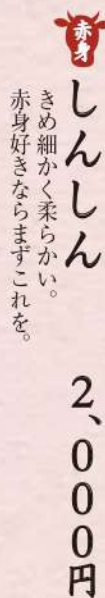 赤身
しんしん 2,000円
きめ細かく柔らかい。
赤身好きならまずこれを。